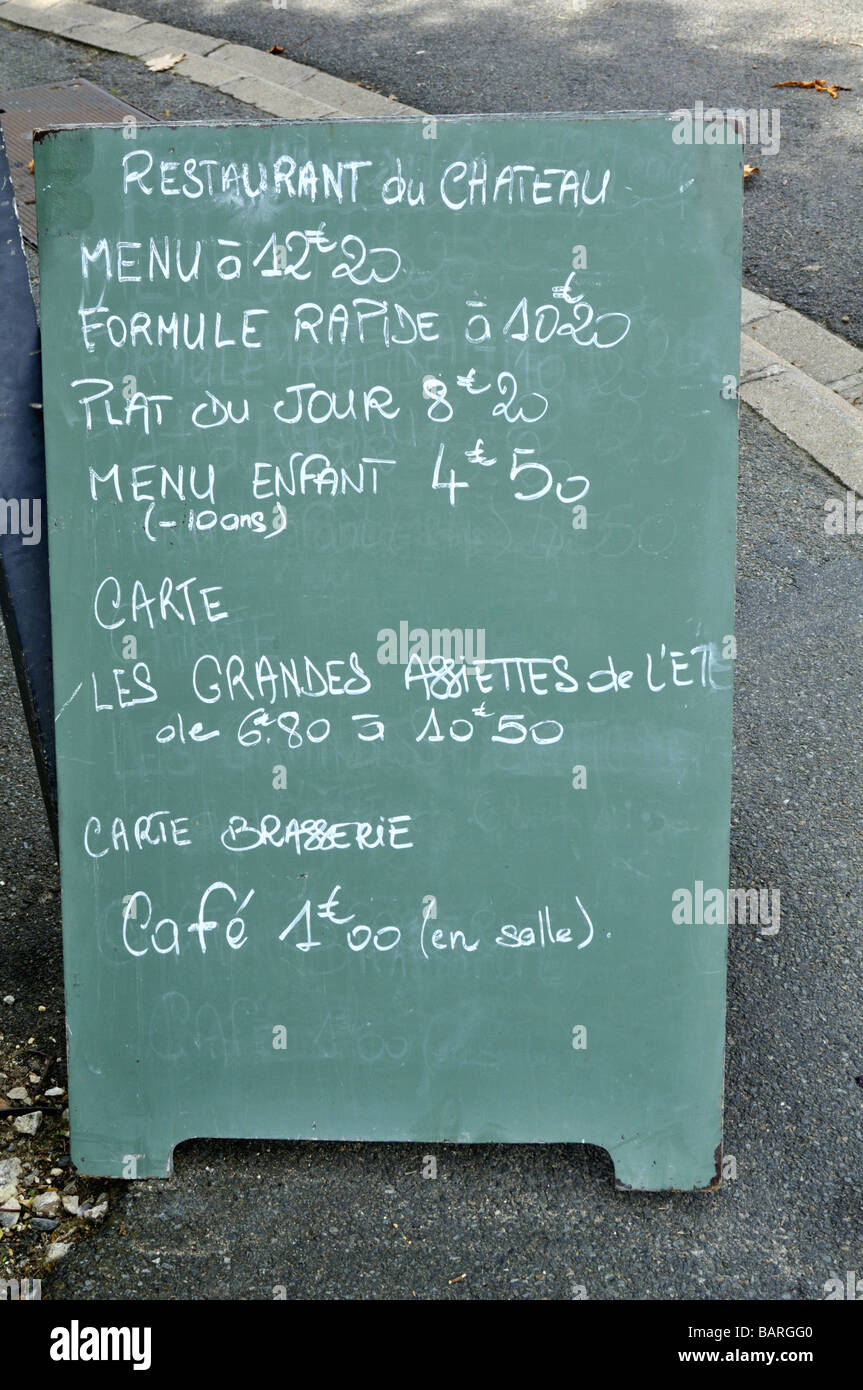 RESTAURANT du CHATEAU
MENU à 12€20
FORMULE RAPIDE à 10€20
PLAT DU JOUR 8€20
MENU ENFANT 4€50
(-10ans)
CARTE
LES GRANDES ASSIETTES de L'ETE
de 6€.80 à 10€50
CARTE BRASSERIE
Café 1€00 (en salle).
alamy
Image ID: BARGG0
www.alamy.com